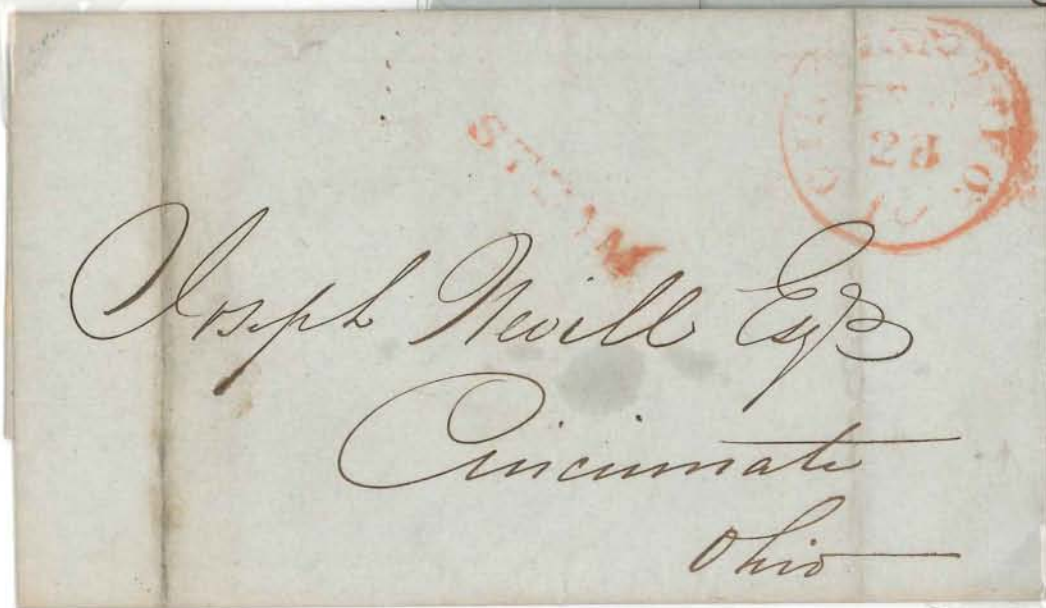 STEAM
28
10
Joseph Nevill Esqr
Cincinnati
Ohio